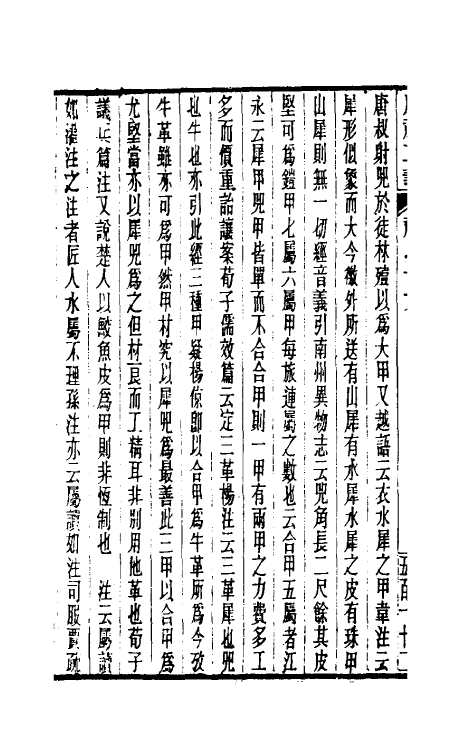 唐叔射兕於徒林殪以爲大甲又越語云衣水犀之甲韋注云
犀形似象而大今徼外所送有山犀有水犀水犀之皮有珠甲
山犀則無一切經音義引南州異物志云兕角長二尺餘其皮
堅可爲鎧甲七屬六屬甲每旅連屬之數也云合甲五屬者江
永云犀甲兕甲皆單而不合合甲則一甲有兩甲之力費多工
多而價重詒讓案荀子儒效篇云定三革楊注云三革犀也兕
也牛也亦引此經三種甲疑楊倞卽以合甲爲牛革所爲今攷
牛革雖亦可爲甲然甲材究以犀兕爲最善此三甲以合甲爲
尤堅當亦以犀兕爲之但材良而工精耳非別用他革也荀子
議兵篇注又說楚人以鮫魚皮爲甲則非恆制也　注云屬讀
如灌注之注者匠人水屬不理孫注亦云屬讀如注司服賈疏